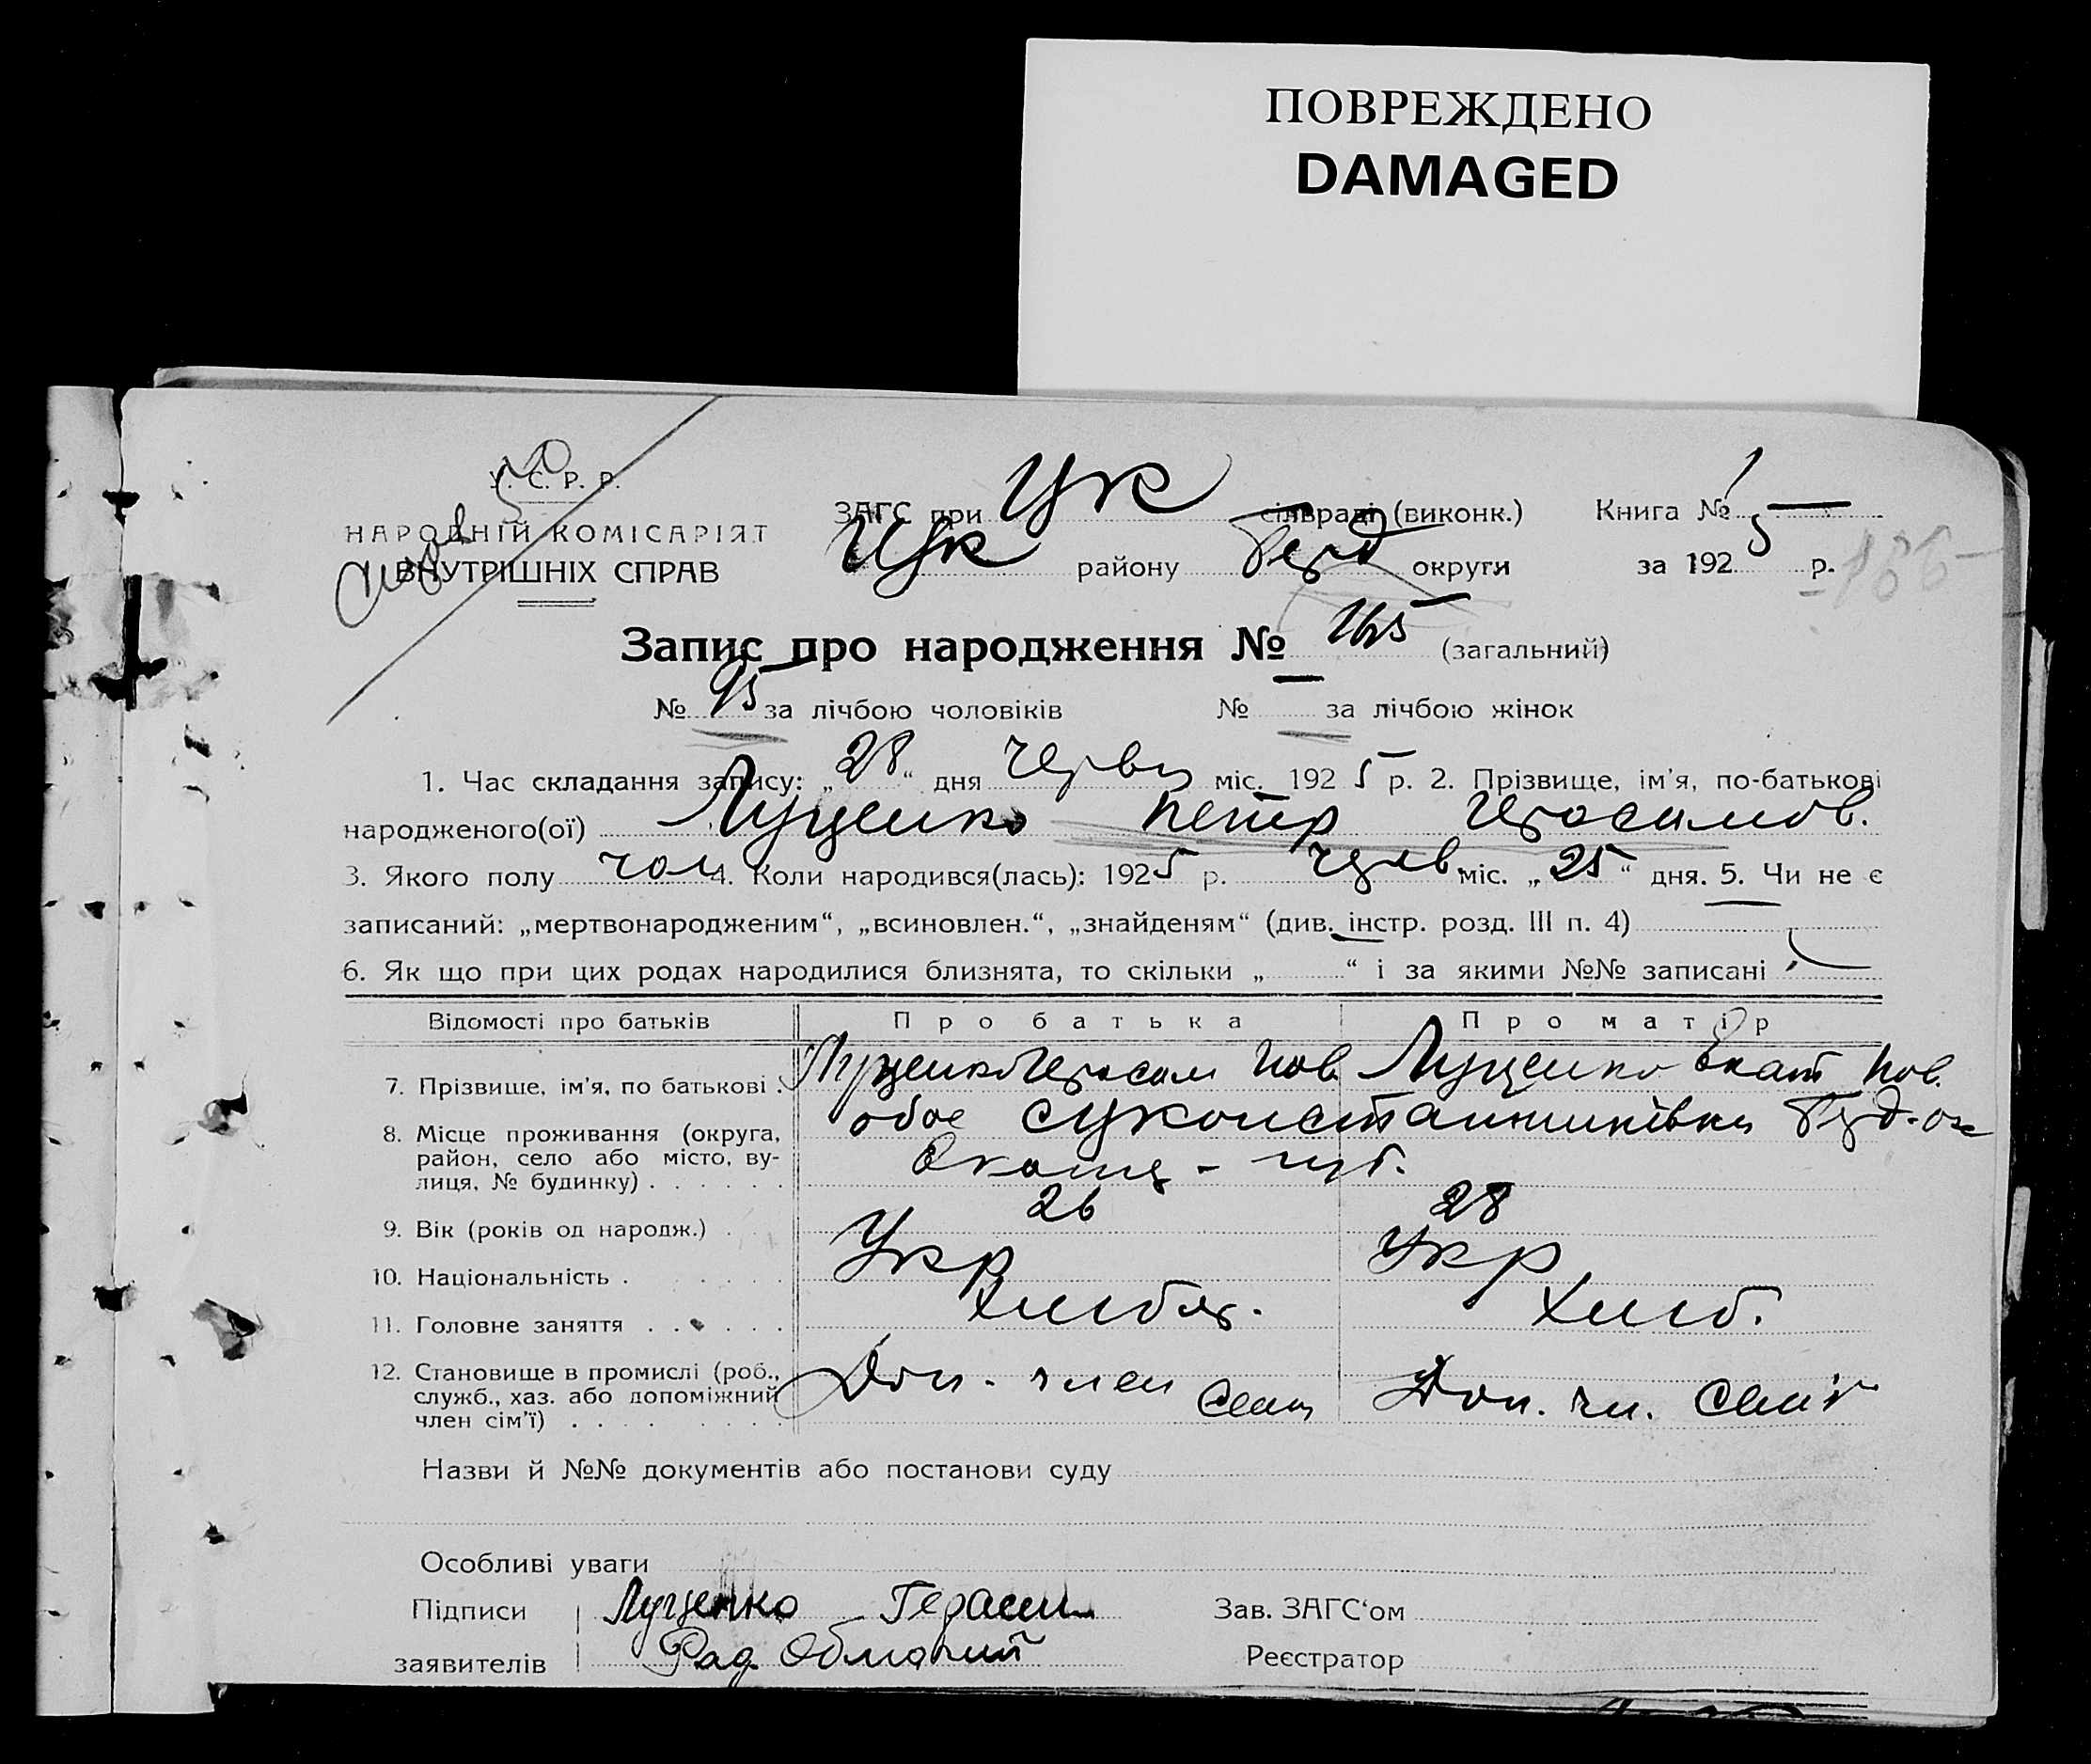 ПОВРЕЖДЕНО
DAMAGED
У. С. Р. Р.
НАРОДНІЙ КОМІСАРІЯТ
ВНУТРІШНІХ СПРАВ
ЗАГС при Цк сільраді (виконк.) Книга №
Цк району Берд округи за 1925 р.
Запис про народження № 165 (загальний)
№ 95 за лічбою чоловіків № за лічбою жінок
1. Час складання запису: „28“ дня червц міс. 1925 р. 2. Прізвище, ім'я, по-батькові
народженого(ої) Луценко Петр Герасимов.
3. Якого полу чол 4. Коли народився(лась): 1925 р. черв міс. „25“ дня. 5. Чи не є
записаний: „мертвонародженим“, „всиновлен.“, „знайденям“ (див. інстр. розд. III п. 4)
6. Як що при цих родах народилися близнята, то скільки „ “ і за якими №№ записані
Відомості про батьків Про батька Про матір
7. Прізвише, ім'я, по батькові . Луценко Герасим Пов. Луценко Екат Пов.
8. Місце проживання (округа, район, село або місто, вулиця, № будинку) . . . . . . обоє Берд-ок
Екате - губ.
9. Вік (років од народж.) . 26 28
10. Національність . . . . . Укр Укр
11. Головне заняття . . . . . . Хлібор. Хліб.
12. Становище в промислі (роб., служб., хаз. або допоміжний член сім'ї) . . . . . . Доп. член Семц Доп. чл. Сем'ї
Назви й №№ документів або постанови суду
Особливі уваги
Підписи Луценко Герасим Зав. ЗАГС'ом
заявителів Рад. Реєстратор